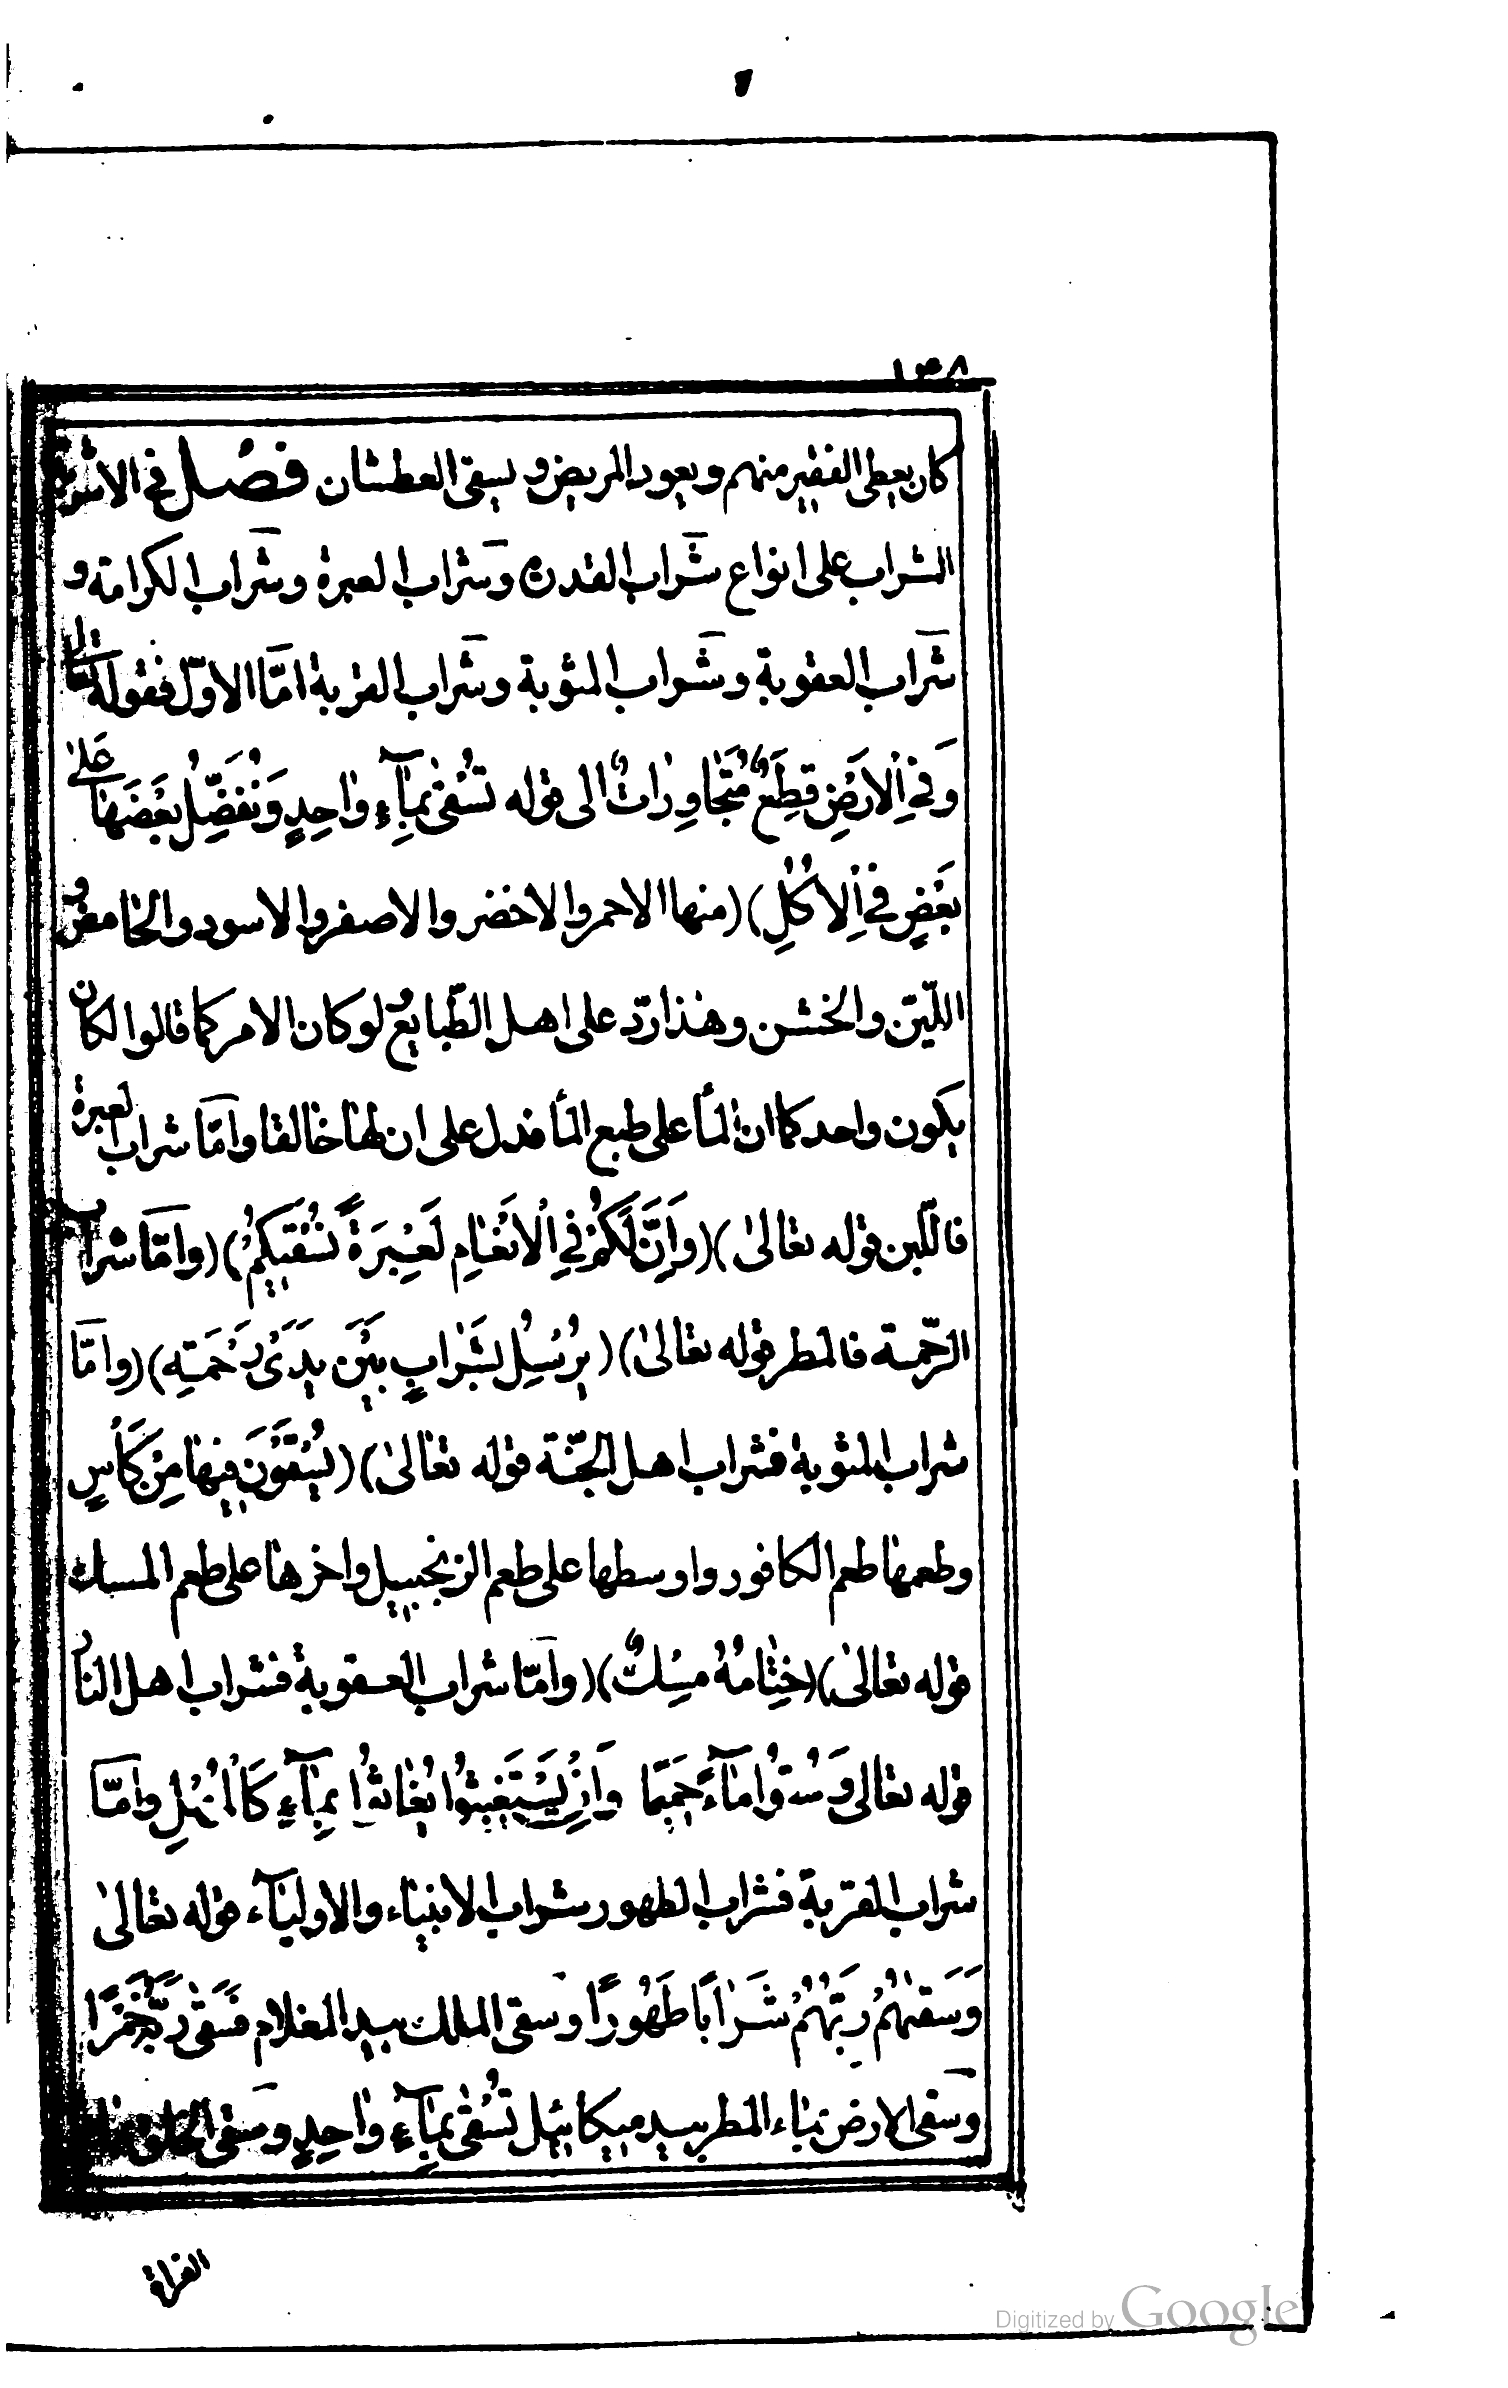 ١٥٨
كان يعطى الفقير منهم ويعود المريض و يسقى العطشان فصل فى
الشراب على انواع شراب القدرة وشراب العبرة وشراب الكرامة و
شراب العقوبة وشراب المثوبة وشراب القربة امّا الاوّل فقوله تعالى
وَفِى اْلاَرْضِ قِطَعٌ مُتَجَاوِرَاتٌ الى قوله تُسْقٰى بِمَآءٍ وَاحِدٍ وَنُفَضِّلُ بَعْضَهَا عَلٰى
بَعْضٍ فِى اْلاُكُلِ)(منها الاحمر والاخضر والاصفر والاسود والحامض و
اللّيّن والخشن وهذا ردّ على اهل الطّبايع لو كان الامر كما قالوا لكان
يكون واحد كما ان المأ على طبع المأ فدل على ان لها خالقا وامّا شراب العبرة
فاللّبن قوله تعالىٰ)(وَاِنَّ لَكُمْ فِى اْلاَنْعَامِ لَعِبْرَةً نُسْقِيكُمْ)(وامّا شراب
الرّحمة فالمطر قوله تعالىٰ)(يُرْسِلُ بشَرَابٍ بَيْنَ يَدَىْ رَحْمَتِهِ)(وامّا
شراب المثوبة فشراب اهل الجنّة قوله تعالىٰ)(يُسْقَوْنَ فِيهَا مِنْ كَأْسٍ
وطعمها طعم الكافور واوسطها على طعم الزنجبيل واخرها على طعم المسك
قوله تعالىٰ)(خِتَامُهُ مِسْكٌ)(وامّا شراب العقوبة فشراب اهل النار
قوله تعالى وَسُقُوا مَآءً حَمِيمًا وَاِنْ يَسْتَغِيثُوا يُغَاثُوا بِمَآءٍ كَالْمُهْلِ وامّا
شراب القربة فشراب الطهور شراب الانبياء والاوليآء قوله تعالىٰ
وَسَقٰيهُمْ رَبُّهُمْ شَرَابًا طَهُورًا وسقى الملك بيد الغلام فَسَقٰى رَبَّهُ خَمْرًا
وسقى الارض بماء المطر بيد ميكائيل تُسْقٰى بِمَآءٍ وَاحِدٍ وسقى الخلق
الفراة
Digitized by Google